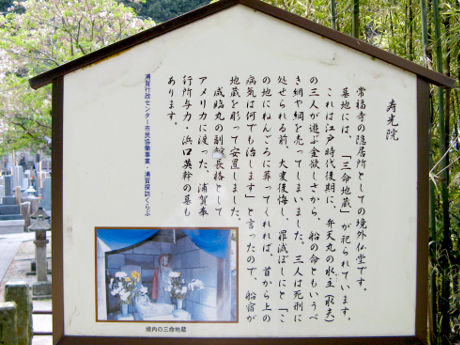 寿光院
常福寺の隠居所としての境外仏堂です。
墓地には、「三命地蔵」が祀られています。
これは江戸時代後期に、弁天丸の水主（水夫）
の三人が遊ぶ金欲しさから、船の命ともいうべ
き錨や綱を売ってしまいました。三人は死刑に
処せられる前、大変後悔し、罪滅ぼしにと「こ
の地にねんごろに葬ってくれれば、首から上の
病気は何でも治します」と言ったので、船宿が
地蔵を彫って安置しました。
咸臨丸の副艦長格として
アメリカに渡った、浦賀奉
行所与力・浜口英幹の墓も
あります。
浦賀行政センター市民協働事業・浦賀探訪くらぶ
境内の三命地蔵